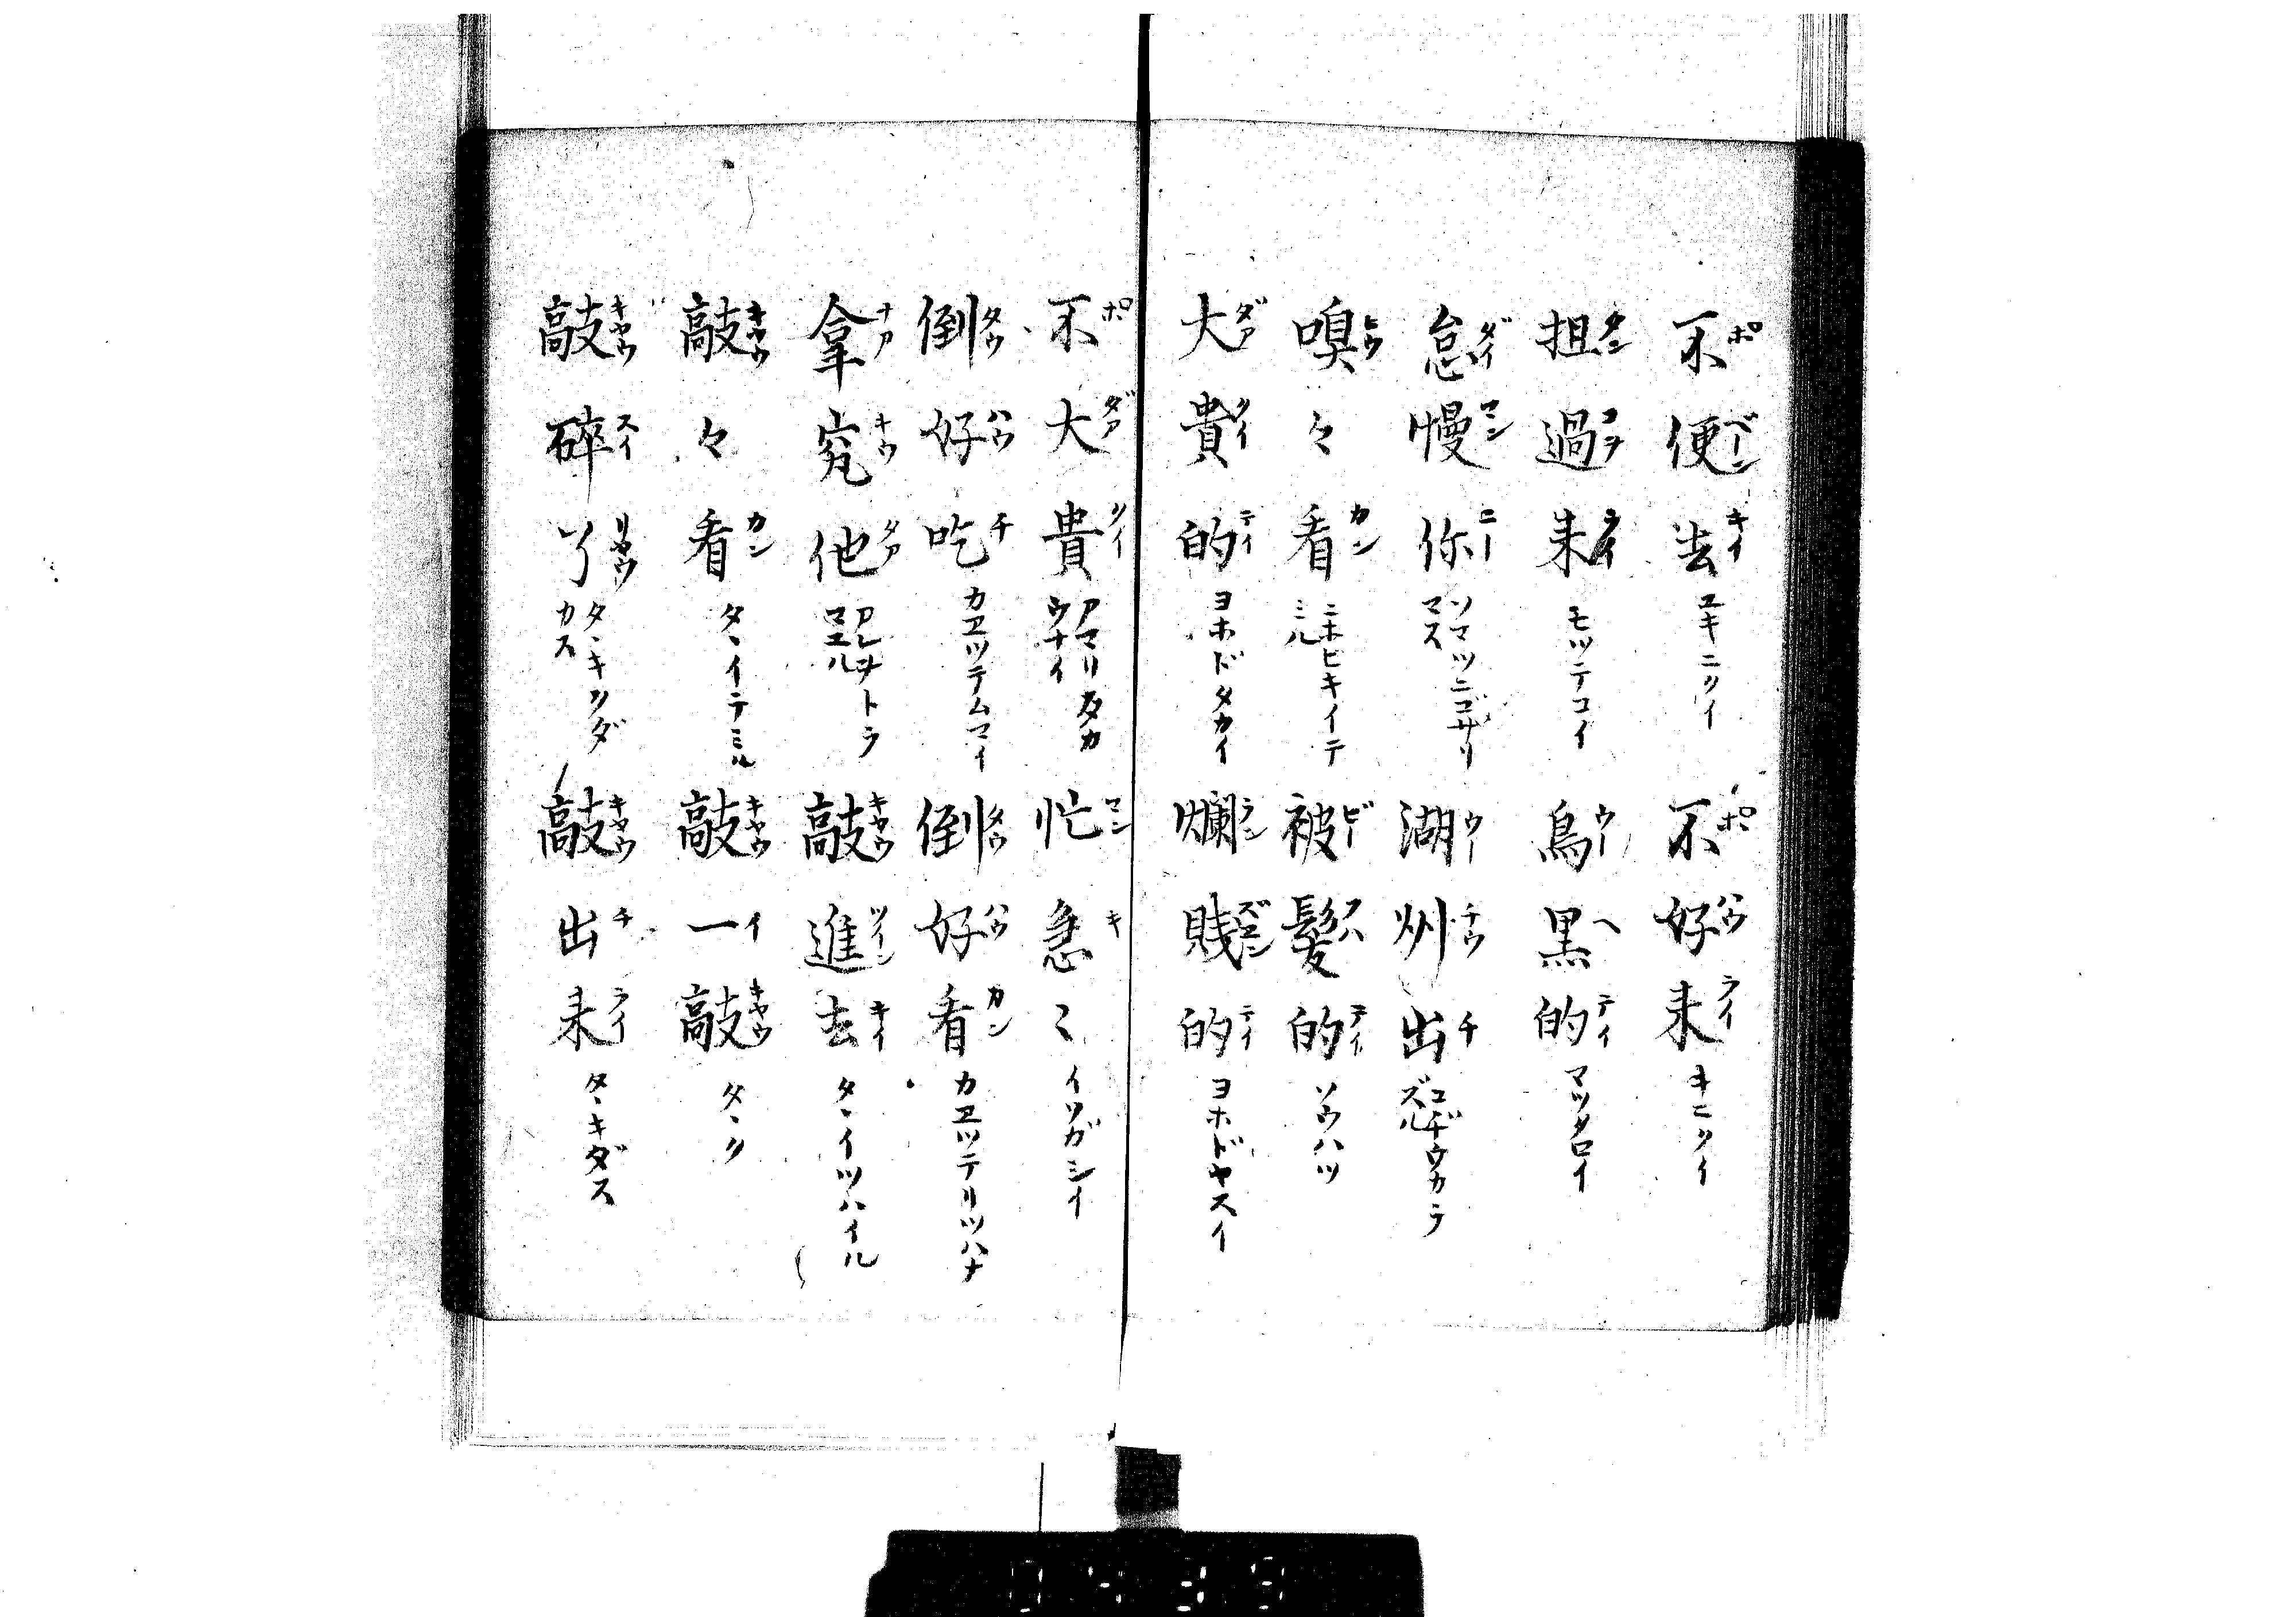 不便去 ユキニクイ 不好来 キニクイ
担過来 モツテコイ 烏黒的 マツクロイ
怠慢你 ソマツニゴザリマス 湖州出 コヂウカラズル
嗅々看 ニホヒキイテミル 被髪的 ソウハツ
大貴的 ヨホドタカイ 爛賤的 ヨホドヤスイ
不大貴 アマリタカウナイ 忙急〻 イソガシイ
倒好吃 カヱツテムマイ 倒好看 カヱツテリツハナ
拿究他 アレヲトラマエル 敲進去 タヽイツハイル
敲々看 タヽイテミル 敲一敲 タヽク
敲碎了 タヽキクダカス 敲出来 タヽキダス